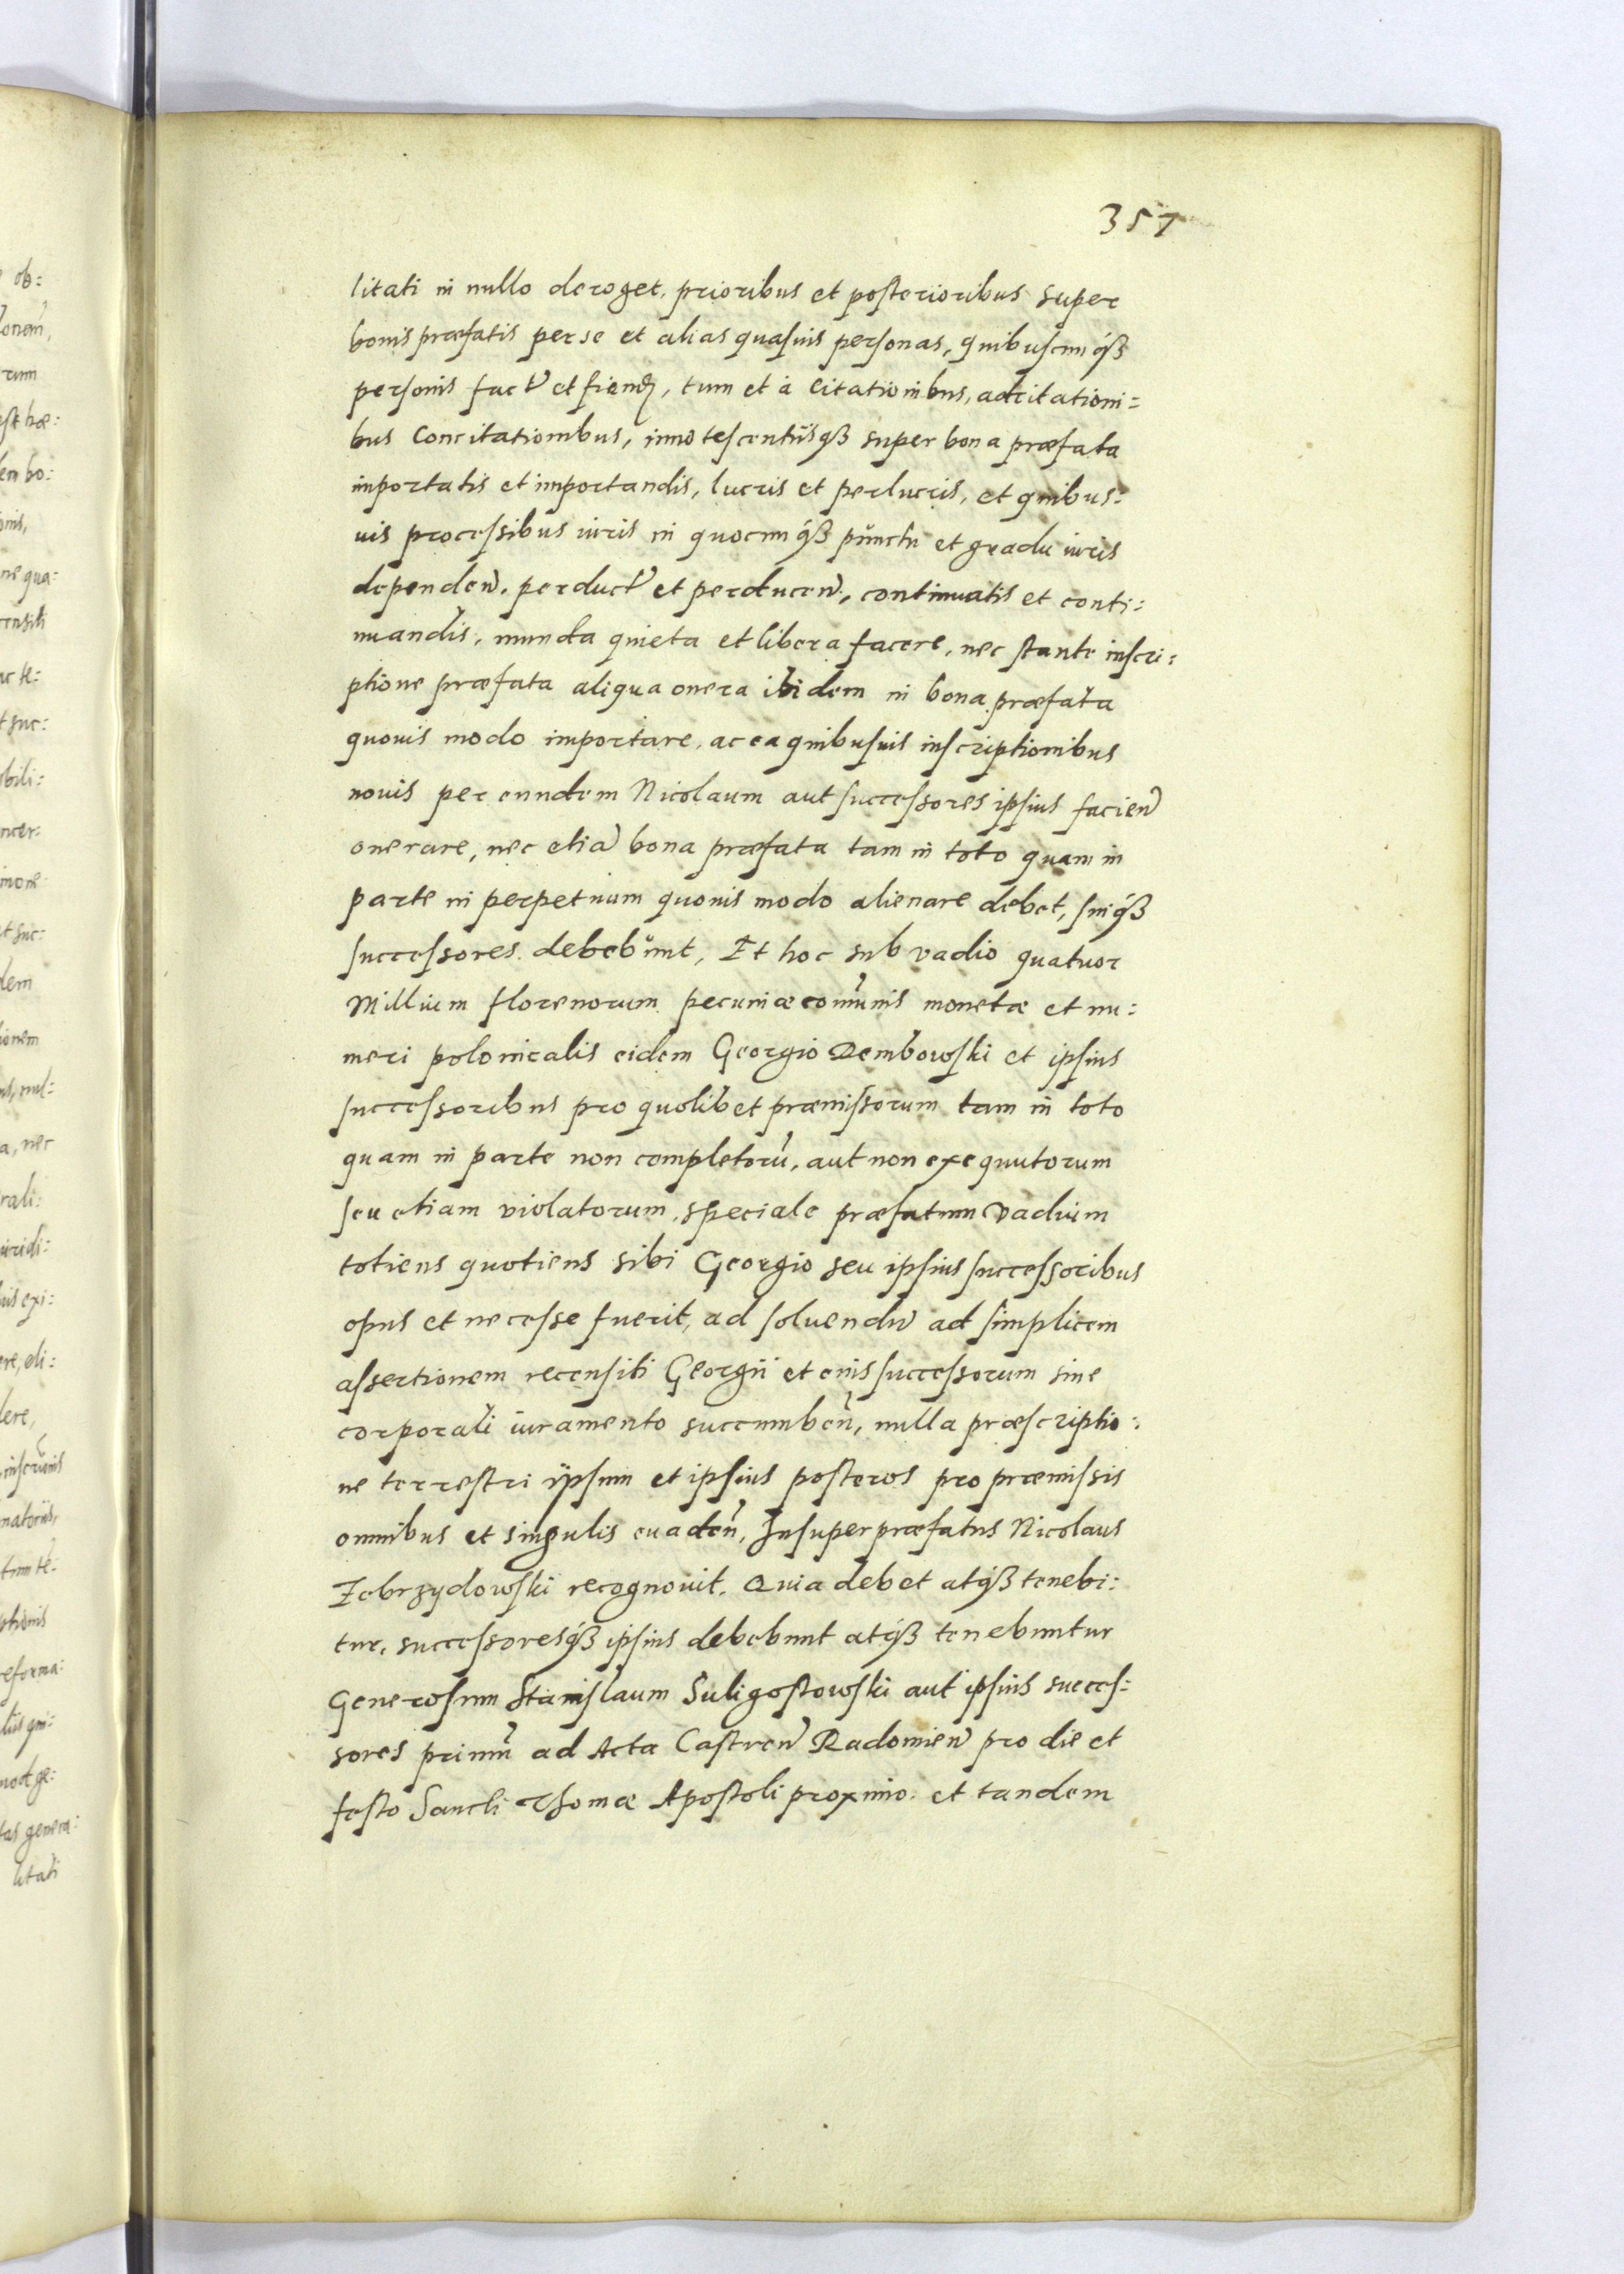 357
litati in nullo deroget, prioribus et posterioribus super
bonis præfatis per se et alias quasuis personas, quibuscunq́ꝫ
personis fact̃ et fiend̃, tum et à citationibus, adcitationi=
bus Concitationibus, innotescentiisq́ꝫ super bona præfata
inportatis et importandis, lucris et perlucris, et quibus=
uis processibus iuris in quocunq́ꝫ pŭnctu et gradu iuris
dependeñ, perduct̃ et perduceñ, continuatis et conti=
nuandis, munda quieta et libera facere, nec stante inscri=
ptione præfata aliqua onera ibidem in bona præfata
quouis modo importare, ac ea quibusuis inscriptionibus
nouis per eundem Nicolaum aut successores ipsius facieñ
onerare, nec etiã bona præfata tam in toto quam in
parte in perpetuum quouis modo alienare debet, suiq́ꝫ
successores debebŭnt, Et hoc sub vadio quatuor
Millium florenorum pecuniæ com̃unis monetæ et nu=
meri polonicalis eidem Georgio Dembowski et ipsius
successoribus pro quolibet præmissorum tam in toto
quam in parte non completorũ, aut non exequutorum
seu etiam violatorum, speciale præfatum vadium
totiens quotiens sibi Georgio seu ipsius successoribus
opus et necesse fuerit, ad soluendũ ad simplicem
assertionem recensiti Georgii et eius successorum sine
corporali iuramento succumbeñ, nulla præscriptio=
ne terrestri ipsum et ipsius posteros pro præmissis
omnibus et singulis euadeñ, Insuper præfatus Nicolaus
Zebrzydowski recognouit, Quia debet atq́ꝫ tenebi=
tur, successoresq́ꝫ ipsius debebunt atq́ꝫ tenebuntur
Generosum Stanislaum Suligostowski aut ipsius succes=
sores primũ ad Acta Castreñ Radomieñ pro die et
festo Sancti Thomæ Apostoli proximo, et tandem